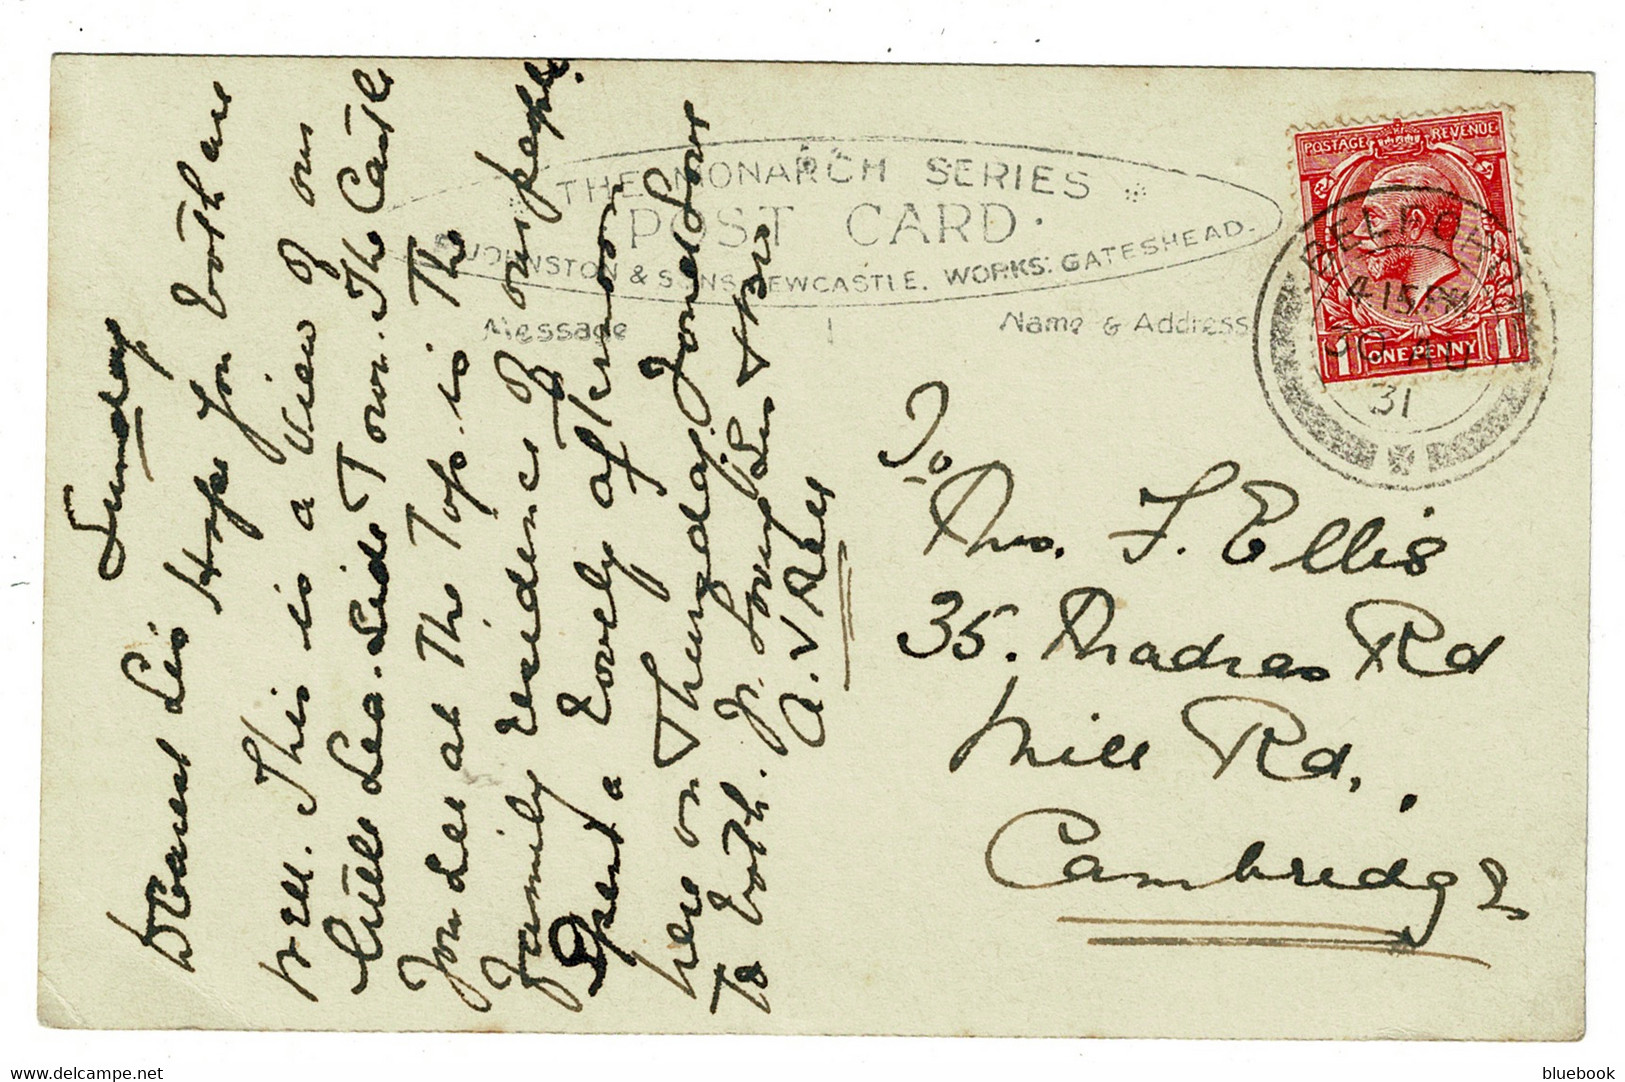 Sunday
Dearest Sis Hope you both are
well. This is a view of our
little Sea-Side Town. The Castle
you see at the Top is The
family residence of our people.
Spent a lovely afternoon
here on Thursday. Fondest Love
To both. Yr. loving Sis & Bro
A. V
THE MONARCH SERIES
POST CARD.
JOHNSTON & SONS NEWCASTLE. WORKS: GATESHEAD.
Message
Name & Address
POSTAGE REVENUE
1 ONE PENNY 1
4 15 PM
30 AU
31
To
Mrs. F. Ellis
35. Madras Rd
Mill Rd,.
Cambridge
delcampe.net
bluebook